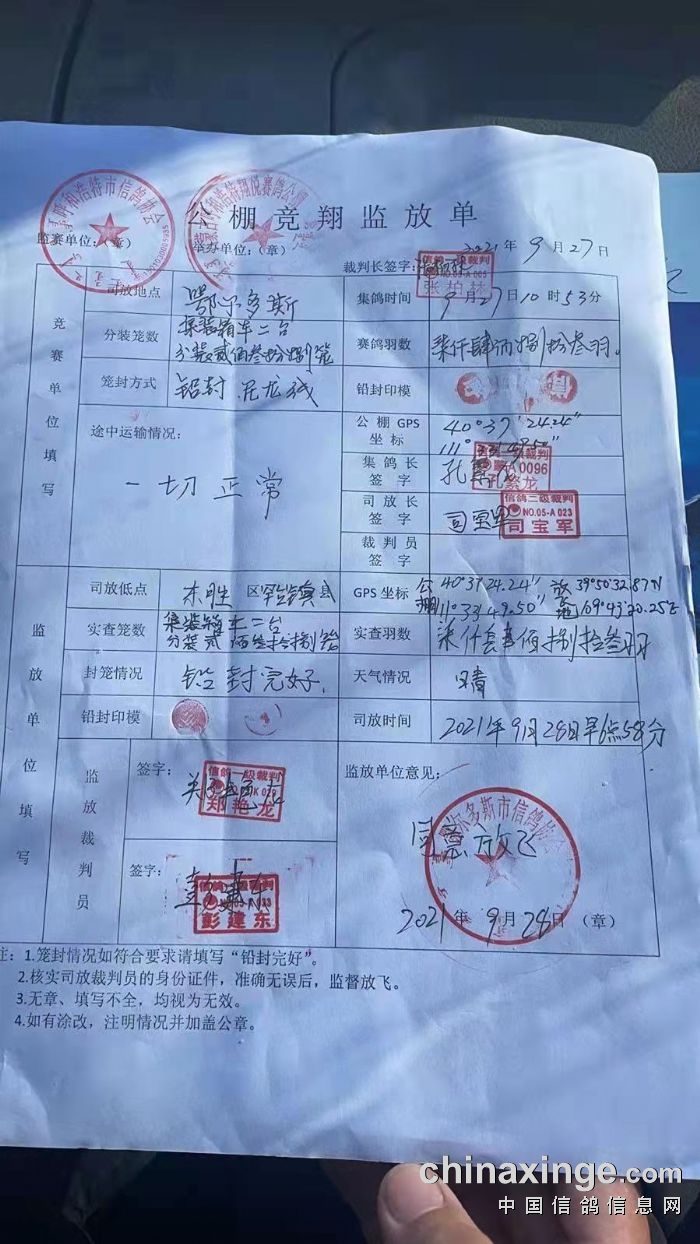 公棚竞翔监放单
呼和浩特市信鸽协会
监赛单位:(章) 举办单位:(章) 2021年9月27日
裁判长签字:
信鸽一级裁判
张柏林
竞赛单位填写
司放地点 鄂尔多斯 集鸽时间 9月27日10时53分
分装笼数 集装箱车二台
分装贰佰叁拾捌笼
赛鸽羽数 柒仟肆佰捌拾叁羽。
笼封方式 铅封 尼龙线 铅封印模
途中运输情况:
一切正常
公棚GPS坐标 40°37'24.24"
111°33'49.50"
集鸽长签字 孔繁龙
司放长签字 司宝军
信鸽二级裁判
NO.05-A 023
司宝军
裁判员签字
监放单位填写
司放低点 东胜区罕台镇县 GPS坐标 公棚 40°37'24.24" 放 39°50'32.87N
111°33'49.50" 109°43'20.25E
实查笼数 集装箱车二台
分装贰佰叁拾捌笼
实查羽数
封笼情况 铅封完好. 天气情况 晴
铅封印模 司放时间 2021年9月28日早6点58分
监放裁判员
签字:
信鸽一级裁判
郑艳龙
签字: 彭建东
信鸽一级裁判
彭建东
监放单位意见:
同意放飞
鄂尔多斯市信鸽协会
2021年9月28日(章)
注:1.笼封情况如符合要求请填写“铅封完好”。
2.核实司放裁判员的身份证件,准确无误后,监督放飞。
3.无章、填写不全,均视为无效。
4.如有涂改,注明情况并加盖公章。
chinaxinge.com
中国信鸽信息网